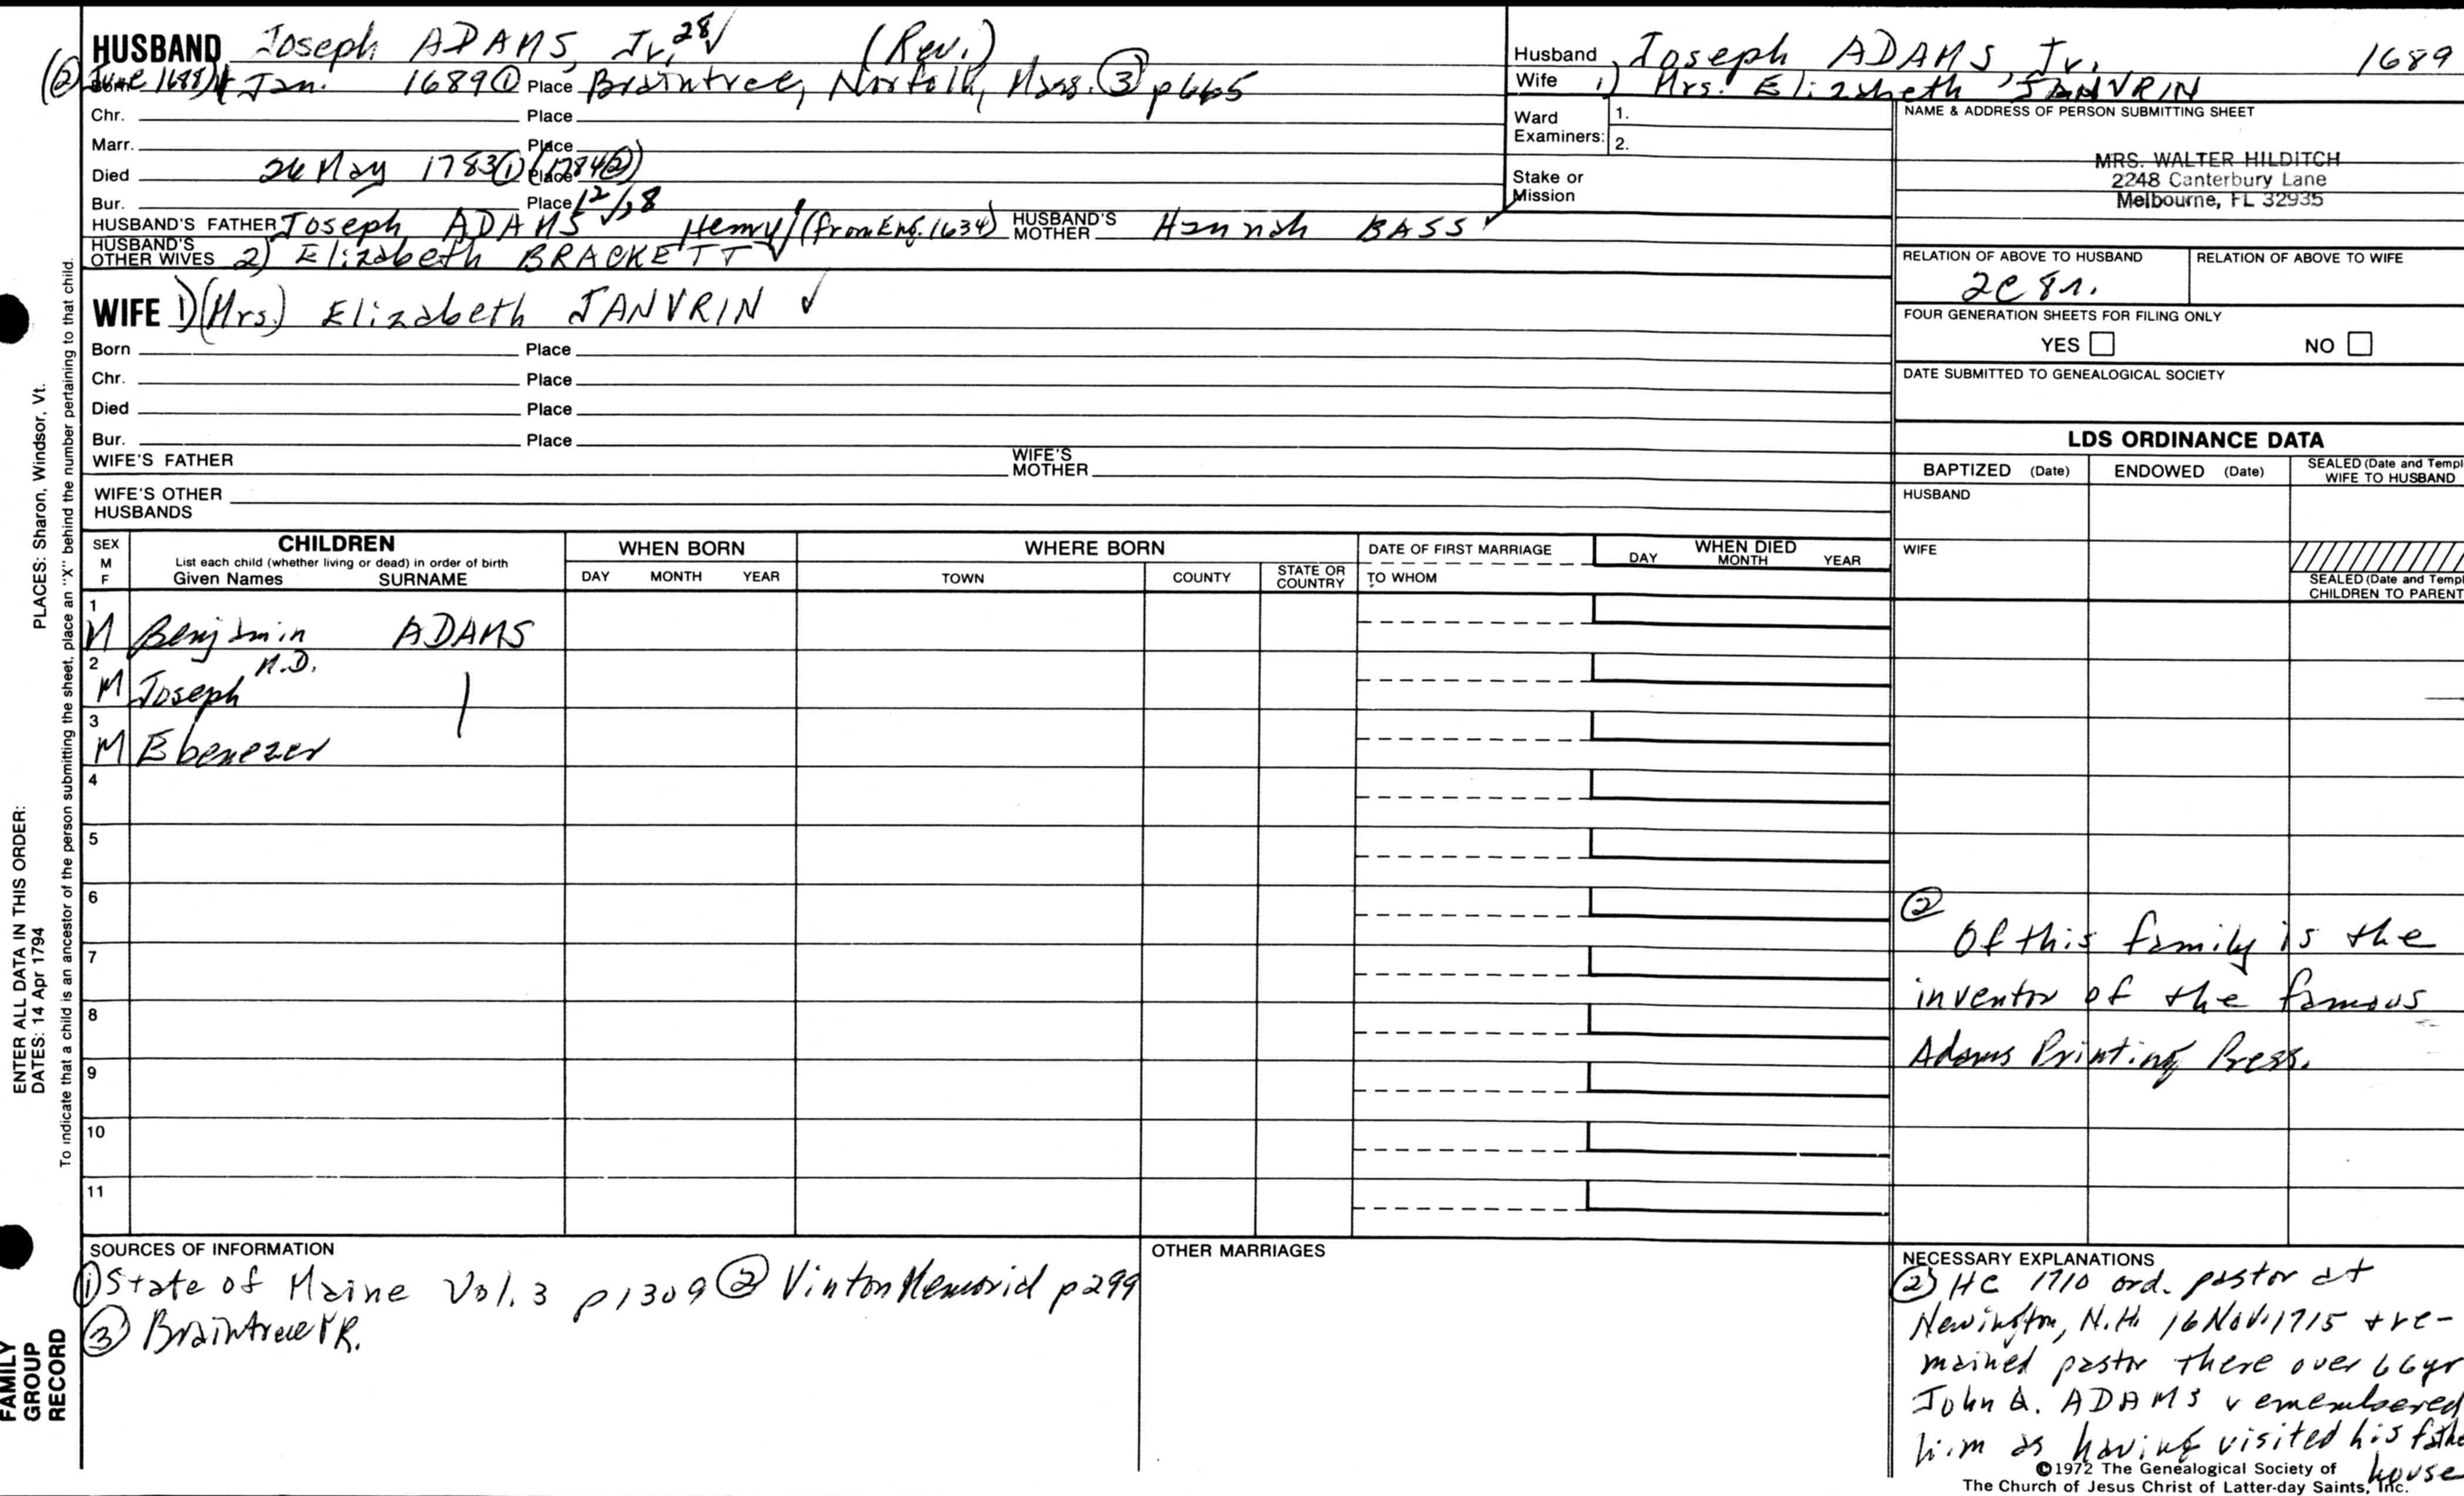 HUSBAND Joseph ADAMS, Jr. 28√ (Rev.)
(② June 1688) Born Jan. 1689① Place Braintree, Norfolk, Mass. ③ p665
Chr. Place
Marr. Place
Died 26 May 1783① (1784②) Place
Bur. Place 12/,8
HUSBAND'S FATHER Joseph ADAMS √ Henry/(from Eng. 1634) HUSBAND'S MOTHER Hannah BASS √
HUSBAND'S OTHER WIVES 2) Elizabeth BRACKETT √
WIFE 1) (Mrs.) Elizabeth JANVRIN √
Born Place
Chr. Place
Died Place
Bur. Place
WIFE'S FATHER WIFE'S MOTHER
WIFE'S OTHER HUSBANDS
Husband Joseph ADAMS, Jr. 1689
Wife 1) Mrs. Elizabeth JANVRIN
Ward Examiners: 1.
2.
Stake or Mission
NAME & ADDRESS OF PERSON SUBMITTING SHEET
MRS. WALTER HILDITCH
2248 Canterbury Lane
Melbourne, FL 32935
RELATION OF ABOVE TO HUSBAND RELATION OF ABOVE TO WIFE
2C 8r.
FOUR GENERATION SHEETS FOR FILING ONLY
YES NO
DATE SUBMITTED TO GENEALOGICAL SOCIETY
LDS ORDINANCE DATA
BAPTIZED (Date) ENDOWED (Date) SEALED (Date and Templ
WIFE TO HUSBAND
HUSBAND
WIFE
SEALED (Date and Templ
CHILDREN TO PARENT
SEX M F
CHILDREN
List each child (whether living or dead) in order of birth
Given Names SURNAME
WHEN BORN
DAY MONTH YEAR
WHERE BORN
TOWN COUNTY STATE OR COUNTRY
DATE OF FIRST MARRIAGE
TO WHOM
WHEN DIED
DAY MONTH YEAR
1
M Benjamin ADAMS
2 M.D.
M Joseph
3
M Ebenezer
4
5
6
7
8
9
10
11
②
Of this family is the
inventor of the famous
Adams Printing Press.
SOURCES OF INFORMATION
① State of Maine Vol. 3 p1309 ② Vinton Memorial p299
③ Braintree VR.
OTHER MARRIAGES
NECESSARY EXPLANATIONS
② HC 1710 ord. pastor at
Newington, N.H. 16 Nov. 1715 + re-
mained pastor there over 66yr
John Q. ADAMS remembered
him as having visited his fathe
house
©1972 The Genealogical Society of
The Church of Jesus Christ of Latter-day Saints, Inc.
PLACES: Sharon, Windsor, Vt.
To indicate that a child is an ancestor of the person submitting the sheet, place an "X" behind the number pertaining to that child.
ENTER ALL DATA IN THIS ORDER:
DATES: 14 Apr 1794
FAMILY
GROUP
RECORD